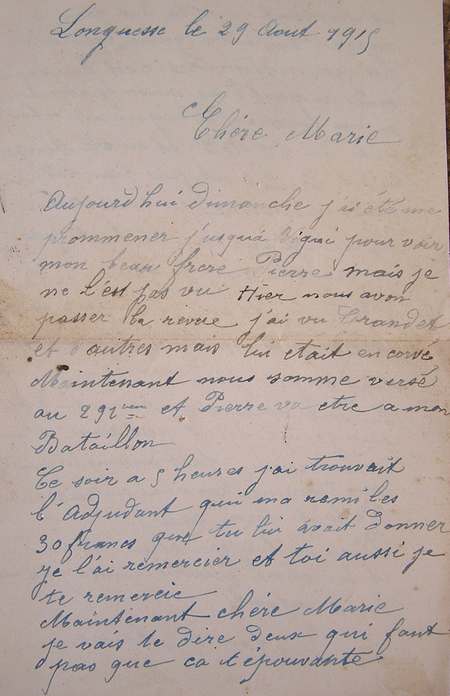 Longuesse le 29 Aout 1915
Chére Marie
Aujourd hui dimanche j ai été me
prommener j'usquà Vigni pour voir
mon beau frere Pierre mais je
ne l'est pas vu Hier nous avon
passer la revue j'ai vu Grandet
et d autres mais lui etait en corvé
Maintenant nous somme versé
au 291 et Pierre va etre a mon
Bataillon
Ce soir a 5 heures j'ai trouvait
l'Adjudant qui ma remi les
30 francs que tu lui avait donner
je l'ai remercier et toi aussi je
te remercie
Maintenant chére Marie
je vais te dire deux qui faut
pas que ca t épouvante